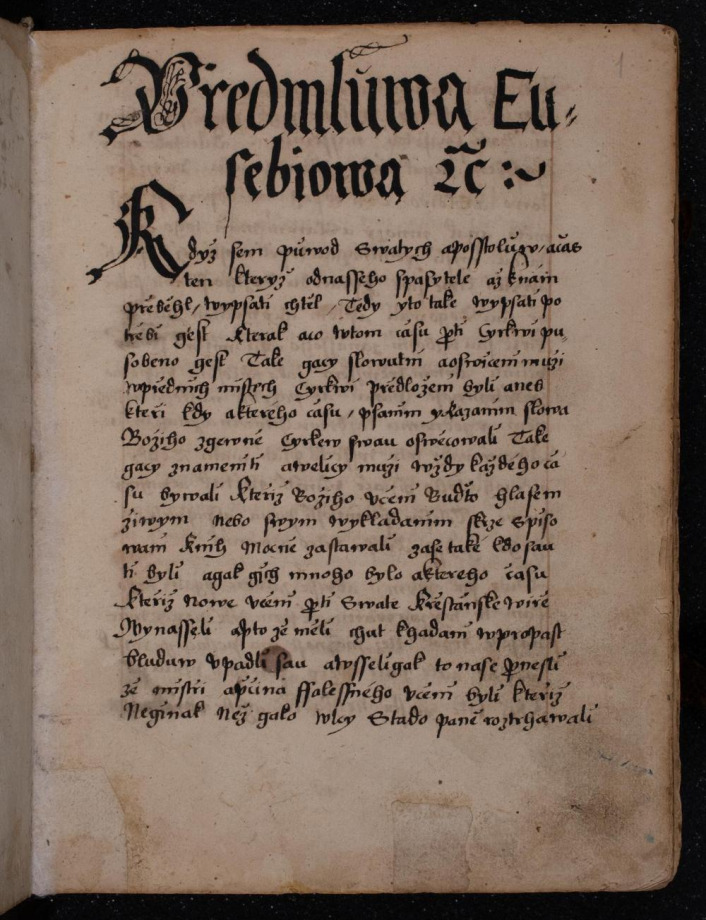 Předmluwa Eu-
sebiowa ꝛc :~
Když sem půwod Swatych aposstoluow / ačas
ten kteryž odnasseho spasytele až knám
přeběhl / wypsati chtěl / Tedy yto take wypsati po
třebí gest kterak aco wtom času proti Cyrkwi pu,
sobeno gest Take gacy slowutní aoswícení muži
wpředních místech Cyrkwi předložení byli aneb
kteří kdy akterého času / psaním ykazaním slowa
Božího zgewně Cyrkew swau oswěcowali Take
gacy znamenití awelicy muži wždy každého ča
su bywali kteříž Božího včení Budto hlasem
žiwym nebo swym wykladaním skrze spiso
waní knih Mocně zastawali zase také kdo sau
ti byli agak gich mnoho bylo aktereho času
kteříž nowe včení proti Swate křestianske wíře
Wynasseli apto že měli chut khadaní wpropast
bluduw vpadli sau awsseligak to nase pronesli
že mistři apučina ffalessného včení byli kteříž
Neginak Než gako wlcy Stado paně roztrhawali
1